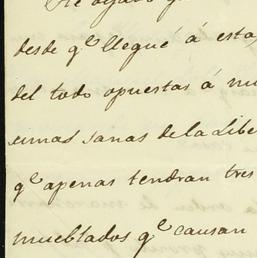 desde q.e llegué á esta
del todo opuestas á
sanas de la Libe
q.e apenas tendran tres
mueblados q.e causan